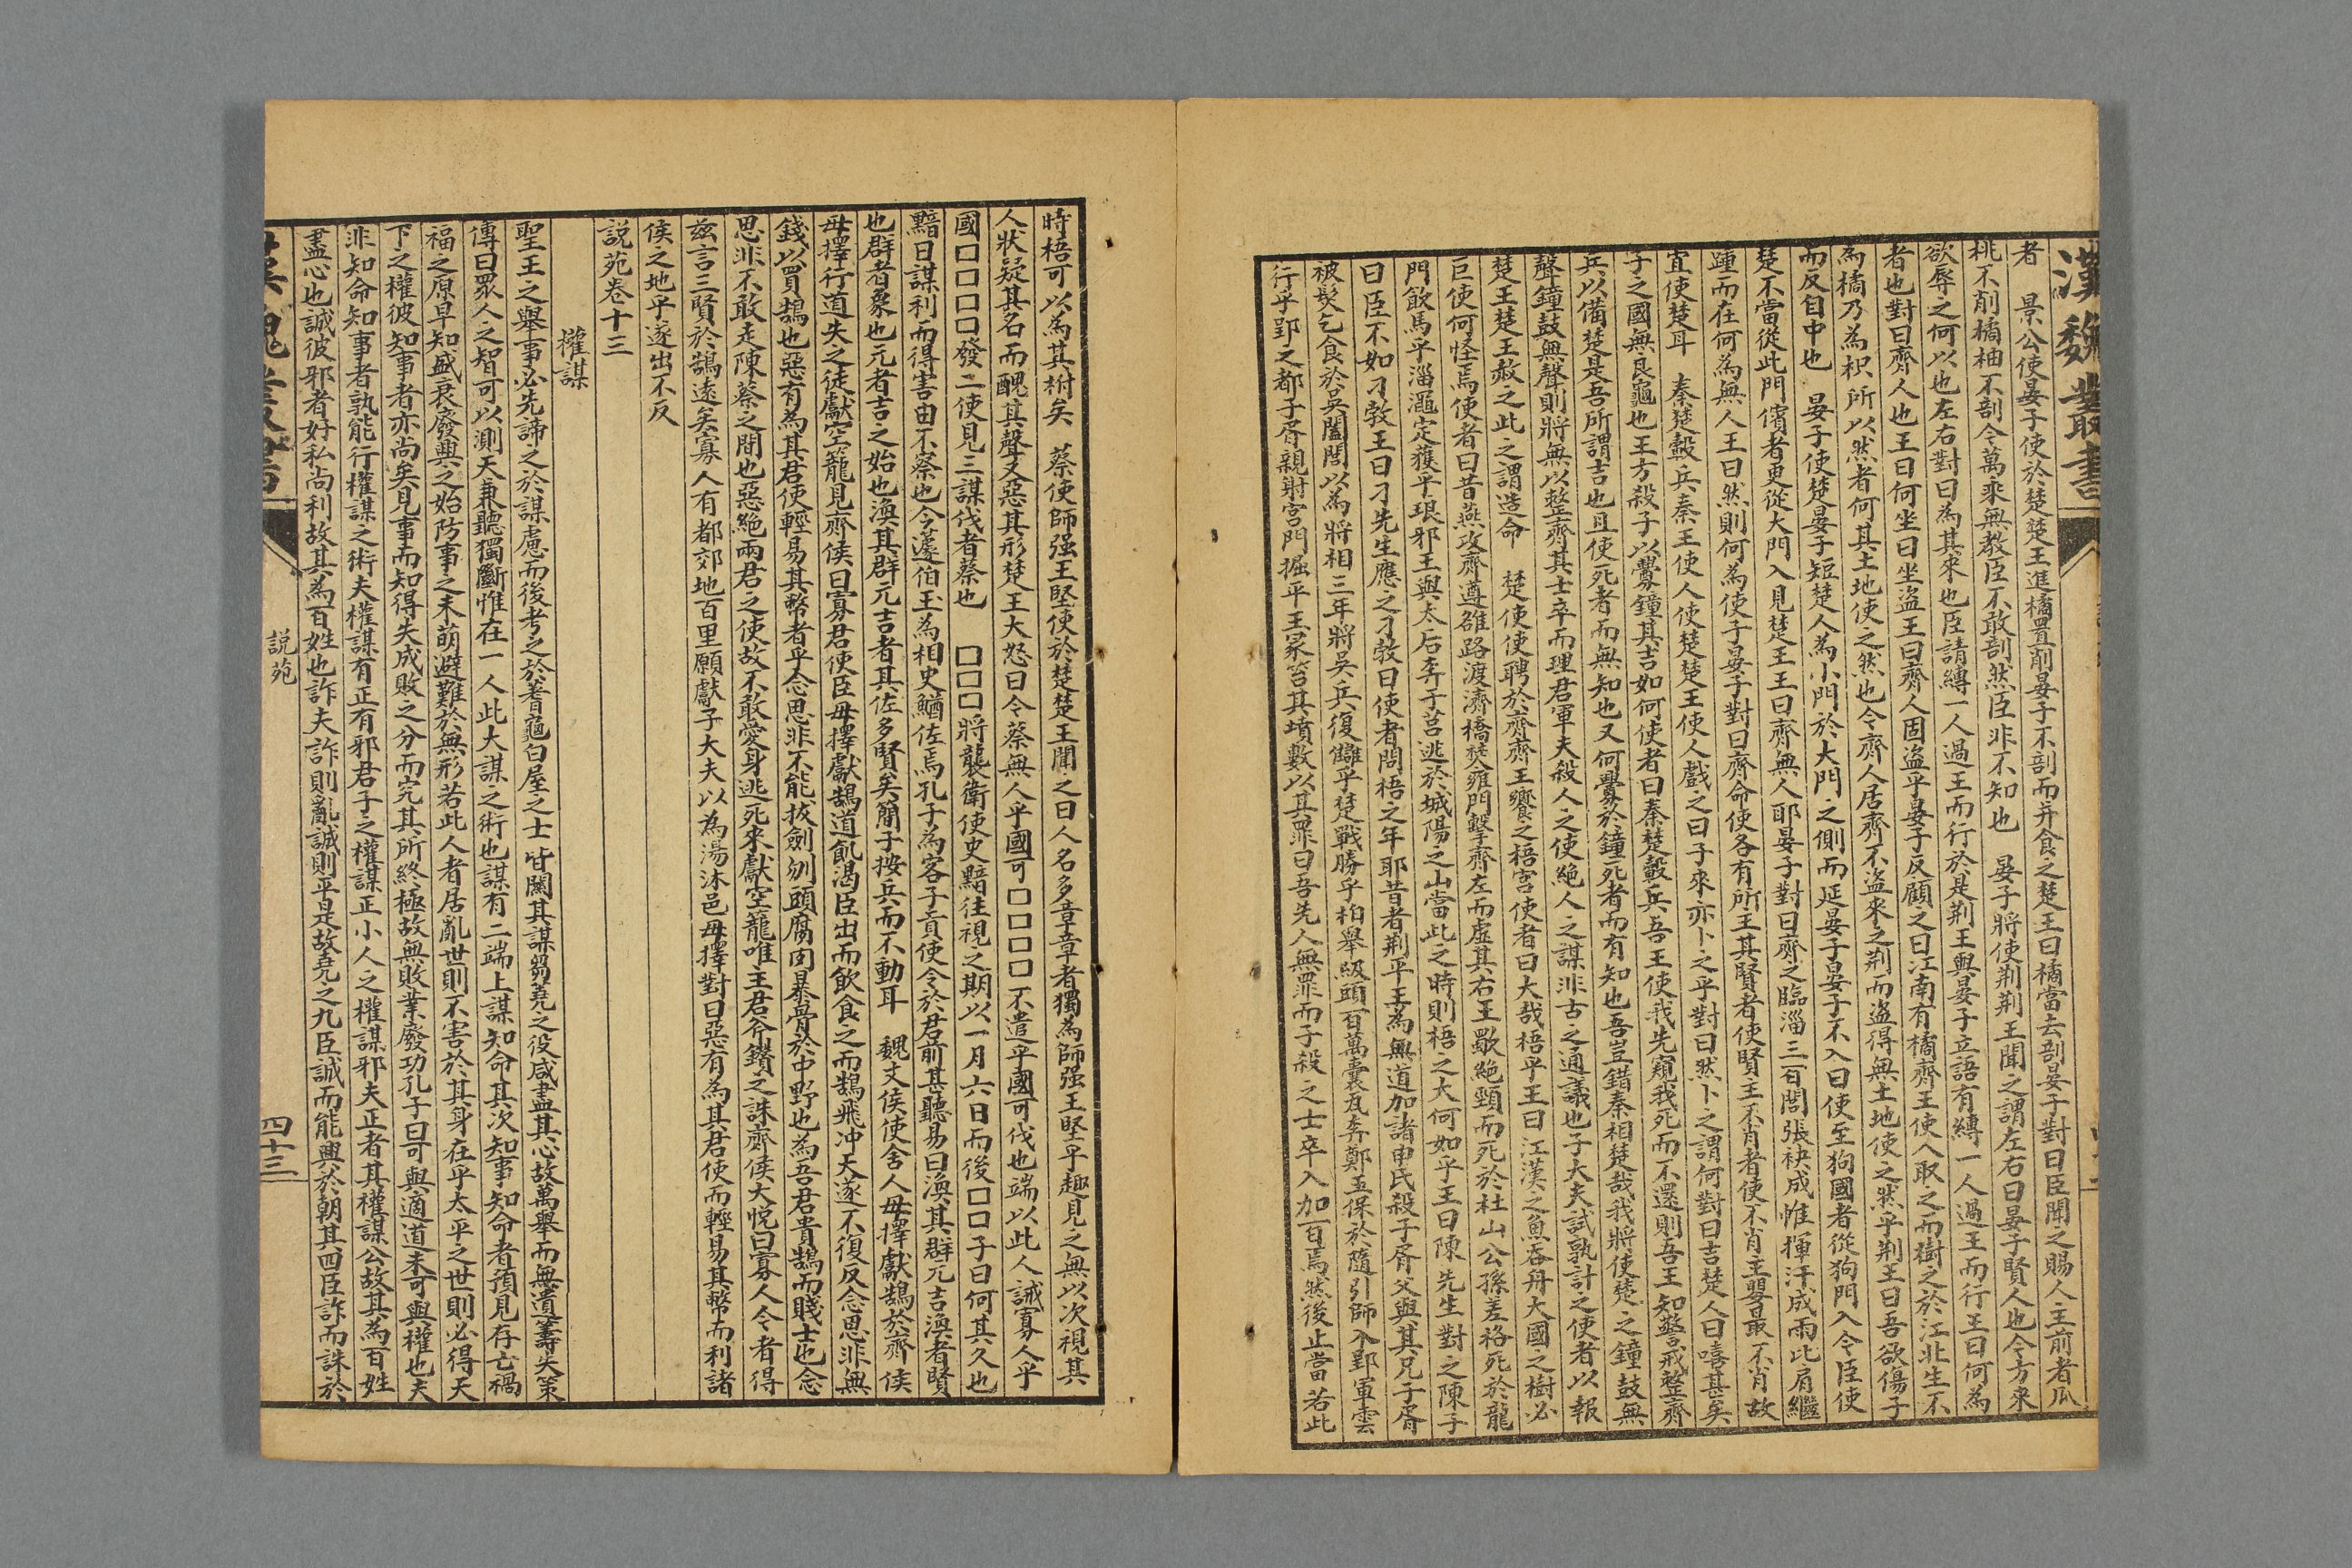 漢魏叢書
者　景公使晏子使於楚楚王進橘置削晏子不剖而并食之楚王曰橘當去剖晏子對曰臣聞之賜人主前者瓜
桃不削橘柚不剖今萬乘無教臣不敢剖然臣非不知也　晏子將使荆荆王聞之謂左右曰晏子賢人也今方來
欲辱之何以也左右對曰為其來也臣請縛一人過王而行於是荆王與晏子立語有縛一人過王而行王曰何為
者也對曰齊人也王曰何坐曰坐盗王曰齊人固盗乎晏子反顧之曰江南有橘齊王使人取之而樹之於江北生不
為橘乃為枳所以然者何其土地使之然也今齊人居齊不盗來之荆而盗得無土地使之然乎荆王曰吾欲傷子
而反自中也　晏子使楚晏子短楚人為小門於大門之側而延晏子晏子不入曰使至狗國者從狗門入今臣使
楚不當從此門儐者更從大門入見楚王王曰齊無人耶晏子對曰齊之臨淄三百閭張袂成帷揮汗成雨比肩繼
踵而在何為無人王曰然則何為使子晏子對曰齊命使各有所主其賢者使賢主不肖者使不肖主嬰最不肖故
宜使楚耳　秦楚轂兵秦王使人使楚楚王使人戲之曰子來亦卜之乎對曰然卜之謂何對曰吉楚人曰嘻甚矣
子之國無良龜也王方殺子以釁鐘其吉如何使者曰秦楚轂兵吾王使我先窺我死而不還則吾王知警戒整齊
兵以備楚是吾所謂吉也且使死者而無知也又何釁於鐘死者而有知也吾豈錯秦相楚哉我將使楚之鐘鼓無
聲鐘鼓無聲則將無以整齊其士卒而理君軍夫殺人之使絶人之謀非古之通議也子大夫試孰計之使者以報
楚王楚王赦之此之謂造命　楚使使聘於齊齊王饗之梧宫使者曰大哉梧乎王曰江漢之魚吞舟大國之樹必
巨使何怪焉使者曰昔燕攻齊遵雒路渡濟橋焚雍門擊齊左而虚其右王歜絶頸而死於杜山公孫差格死於龍
門飲馬乎淄澠定獲乎琅邪王與太后奔于莒逃於城陽之山當此之時則梧之大何如乎王曰陳先生對之陳子
曰臣不如刁敦王曰刁先生應之刁敦曰使者問梧之年耶昔者荆平王為無道加諸申氏殺子胥父與其兄子胥
被髮乞食於吳闔閭以為將相三年將吳兵復讎乎楚戰勝乎柏舉級頭百萬囊瓦奔鄭王保於隨引師入郢軍雲
行乎郢之都子胥親射宫門掘平王冢笞其墳數以其罪曰吾先人無罪而子殺之士卒入加百焉然後止當若此
時梧可以為其柎矣　蔡使師强王堅使於楚楚王聞之曰人名多章章者獨為師强王堅乎趣見之無以次視其
人狀疑其名而醜其聲又惡其形楚王大怒曰今蔡無人乎國可□□□□不遣乎國可伐也端以此人誡寡人乎
國□□□□發二使見三謀伐者蔡也　□□□將襲衛使史黯往視之期以一月六日而後□□子曰何其久也
黯曰謀利而得害由不察也今蘧伯玉為相史鰌佐焉孔子為客子貢使令於君前甚聽易曰渙其群元吉渙者賢
也群者衆也元者吉之始也渙其群元吉者其佐多賢矣簡子按兵而不動耳　魏文侯使舍人毋擇獻鵠於齊侯
毋擇行道失之徒獻空籠見齊侯曰寡君使臣毋擇獻鵠道飢渴臣出而飲食之而鵠飛冲天遂不復反念思非無
錢以買鵠也惡有為其君使輕易其幣者乎念思非不能拔劍刎頭腐肉暴骨於中野也為吾君貴鵠而賤士也念
思非不敢走陳蔡之間也惡絶兩君之使故不敢愛身逃死來獻空籠唯主君斧鑕之誅齊侯大悦曰寡人今者得
兹言三賢於鵠遠矣寡人有都郊地百里願獻子大夫以為湯沐邑毋擇對曰惡有為其君使而輕易其幣而利諸
侯之地乎遂出不反
説苑卷十三
權謀
聖王之舉事必先諦之於謀慮而後考之於蓍龜白屋之士皆關其謀芻蕘之役咸盡其心故萬舉而無遺籌失策
傳曰眾人之智可以測天兼聽獨斷惟在一人此大謀之術也謀有二端上謀知命其次知事知命者預見存亡禍
福之原早知盛衰廢興之始防事之未萌避難於無形若此人者居亂世則不害於其身在乎太平之世則必得天
下之權彼知事者亦尚矣見事而知得失成敗之分而究其所終極故無敗業廢功孔子曰可與適道未可與權也夫
非知命知事者孰能行權謀之術夫權謀有正有邪君子之權謀正小人之權謀邪夫正者其權謀公故其為百姓
盡心也誠彼邪者好私尚利故其為百姓也詐夫詐則亂誠則平是故堯之九臣誠而能興於朝其四臣詐而誅於
漢魏叢書
説苑
四十三